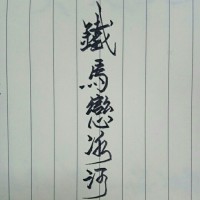 鐵馬戀冰河